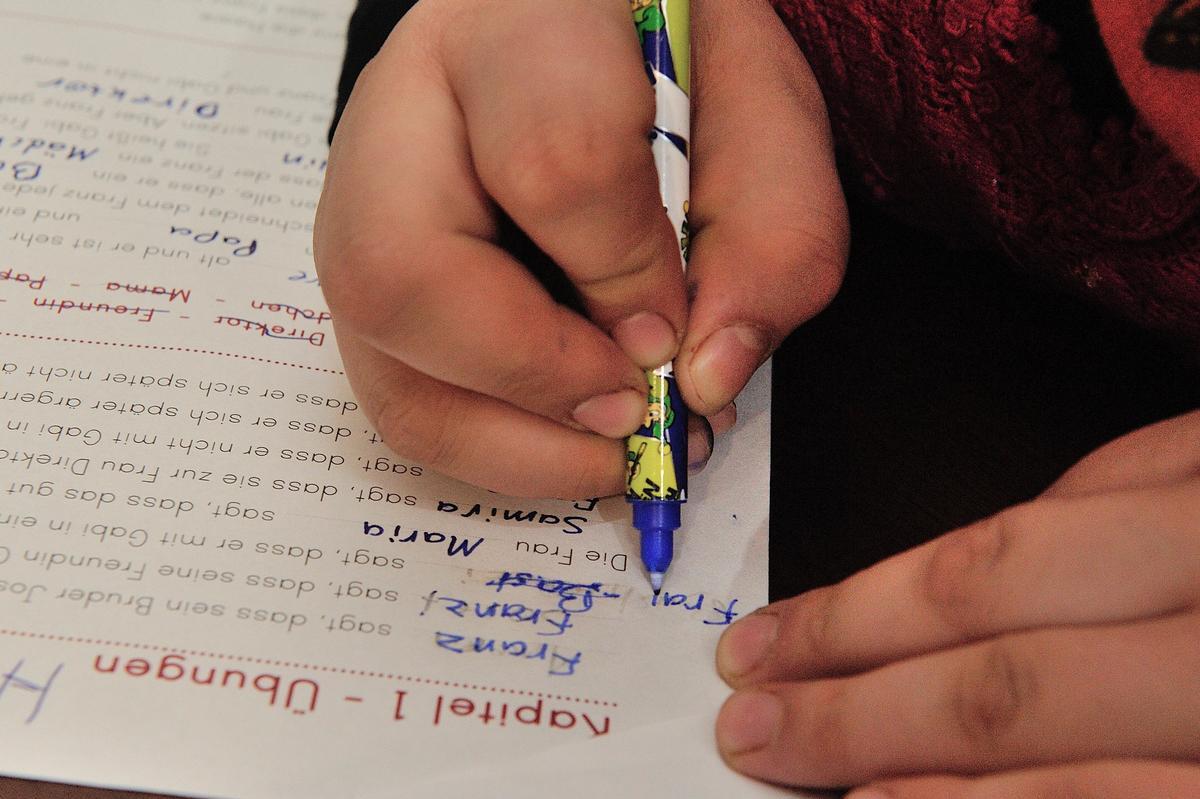 Kapitel 1 - Übungen
Franz sagt, dass sein Bruder Jos
Franz sagt, dass seine Freundin
Fra Bast sagt, dass er mit Gabi in ein
Die Frau Maria sagt, dass das gut
Samira sagt, dass sie zur Frau Direkto
sagt, dass er nicht mit Gabi in
dass er sich später ärger
dass er sich später nicht ä
Direktor - Freundin -
dchen - Mama - Pap
alt und er ist sehr
Papa und ein
schneidet dem Franz jede
en alle, dass er ein B
dass der Franz ein Mädch
Sie heißt Gabi. Fr
Gabi sitzen. Aber Franz geh
Frau Direktor